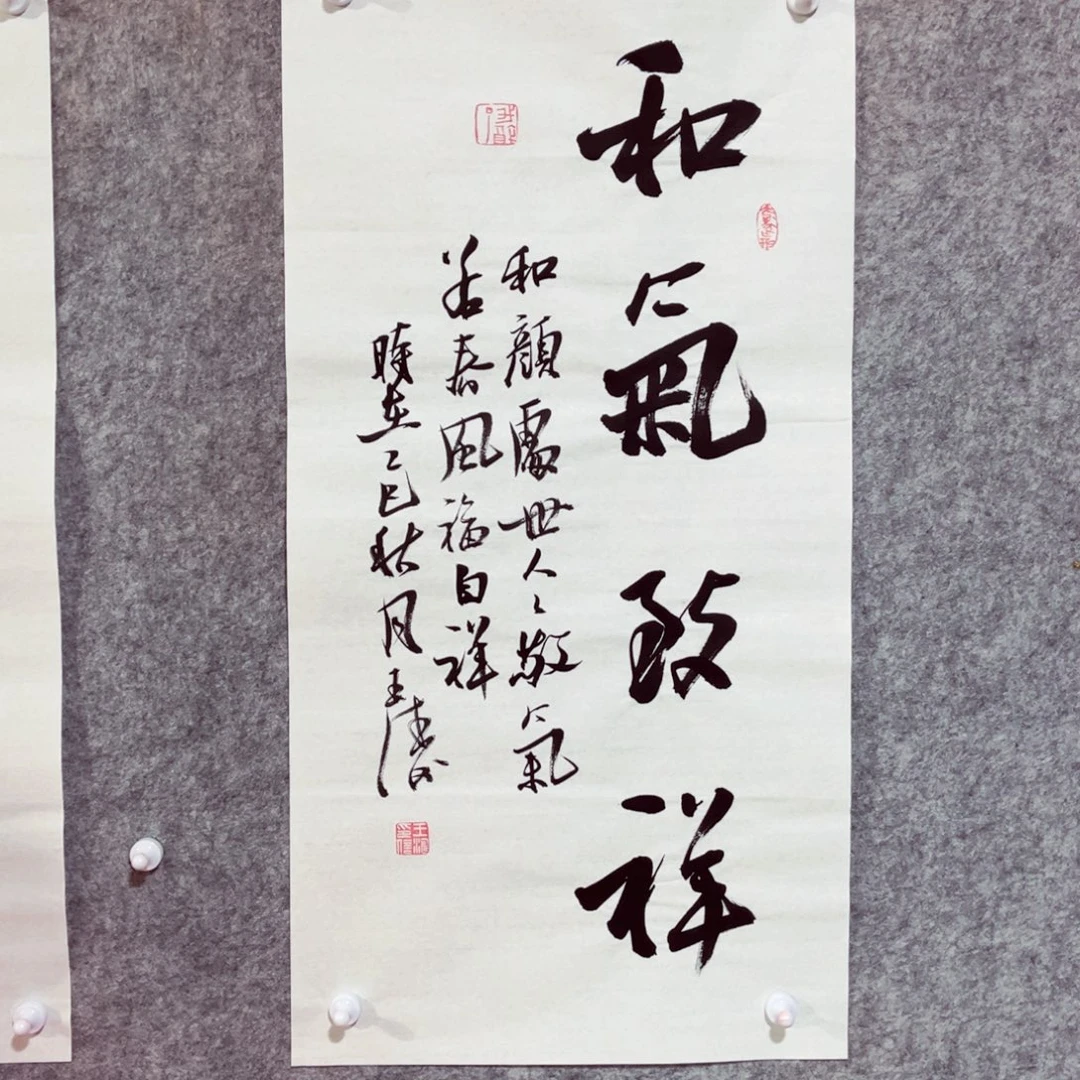 和氣致祥
和顔處世人々敬氣
若春風福自祥
時在乙巳秋月王